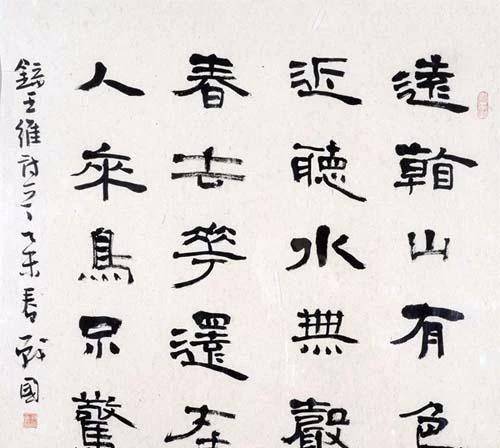 遠看山有色
近聽水無聲
春去花還在
人來鳥不驚
錄王維詩 乙未春 國